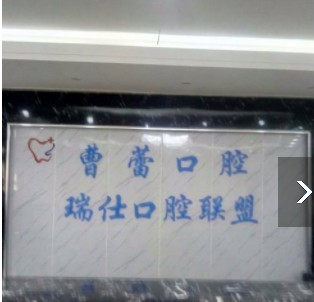 曹蕾口腔
瑞仕口腔联盟